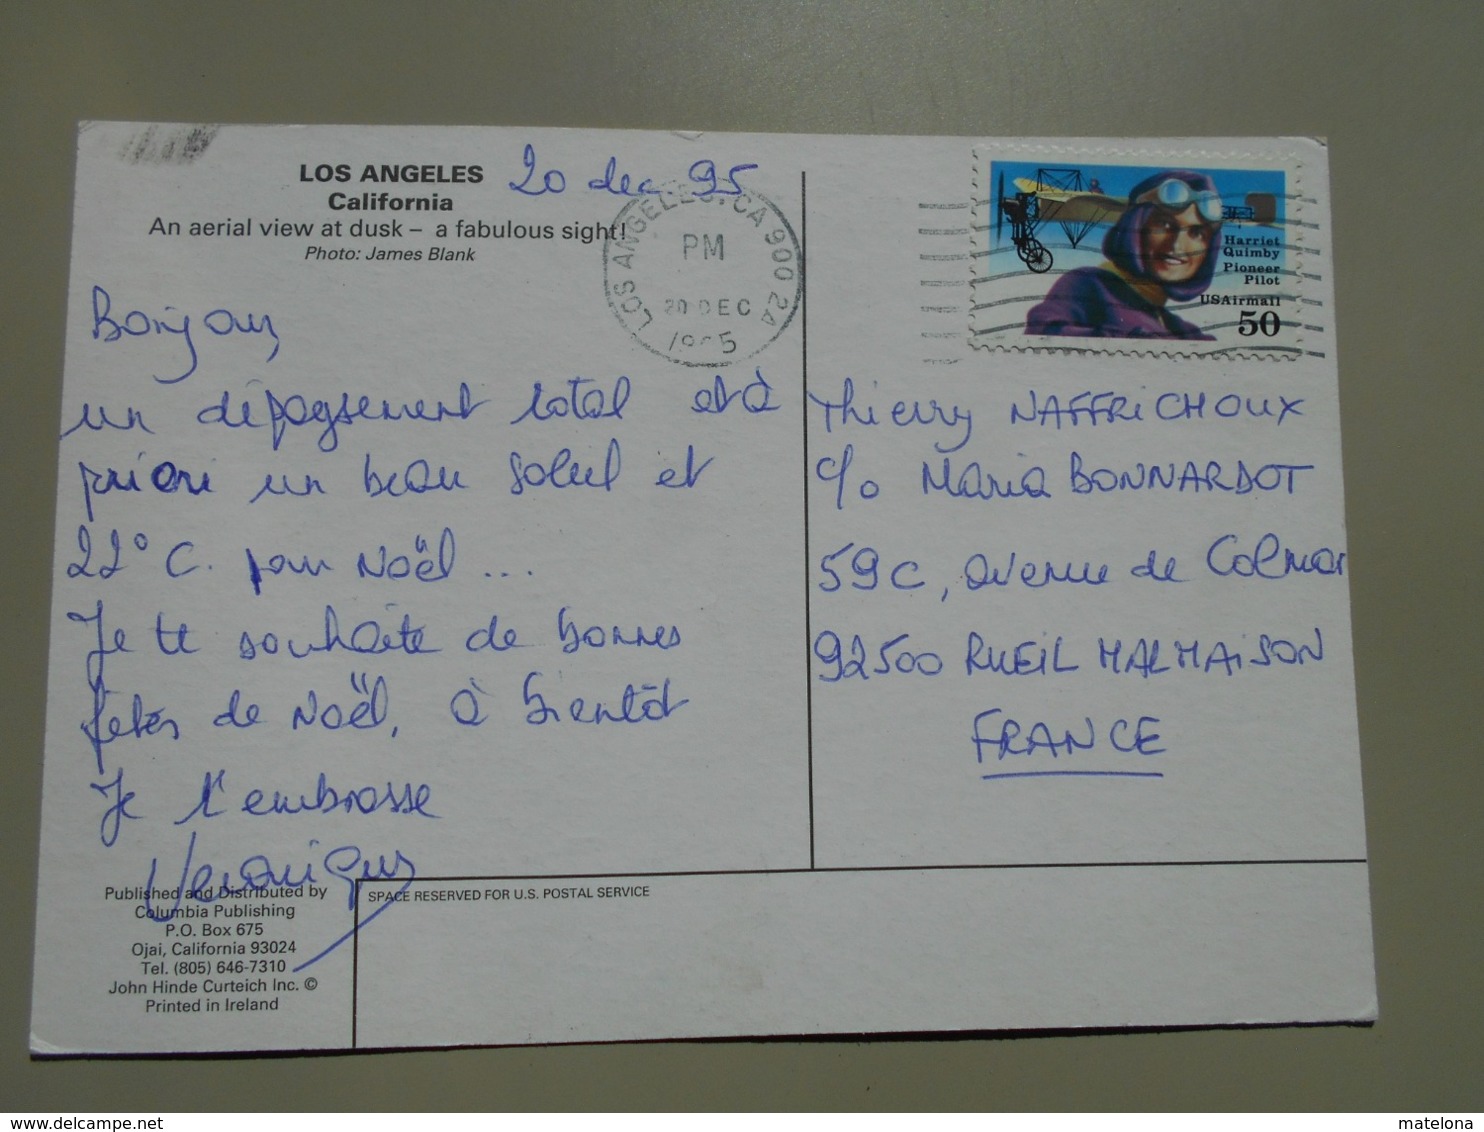 LOS ANGELES
California
An aerial view at dusk – a fabulous sight!
Photo: James Blank
20 dec 95
LOS ANGELES, CA 900 24
PM
20 DEC
1995
Harriet
Quimby
Pioneer
Pilot
USAirmail
50
Bonjour
un dépaysement total et à
priori un beau soleil et
22°C. pour Noël ...
Je te souhaite de bonnes
fêtes de Noël, à bientôt
Je t'embrasse
Veronique
Thierry NAFFRICHOUX
c/o Maria BONNARDOT
59c, avenue de Colmar
92500 RUEIL MALMAISON
FRANCE
Published and Distributed by
Columbia Publishing
P.O. Box 675
Ojai, California 93024
Tel. (805) 646-7310
John Hinde Curteich Inc. ©
Printed in Ireland
SPACE RESERVED FOR U.S. POSTAL SERVICE
delcampe.net
matelona